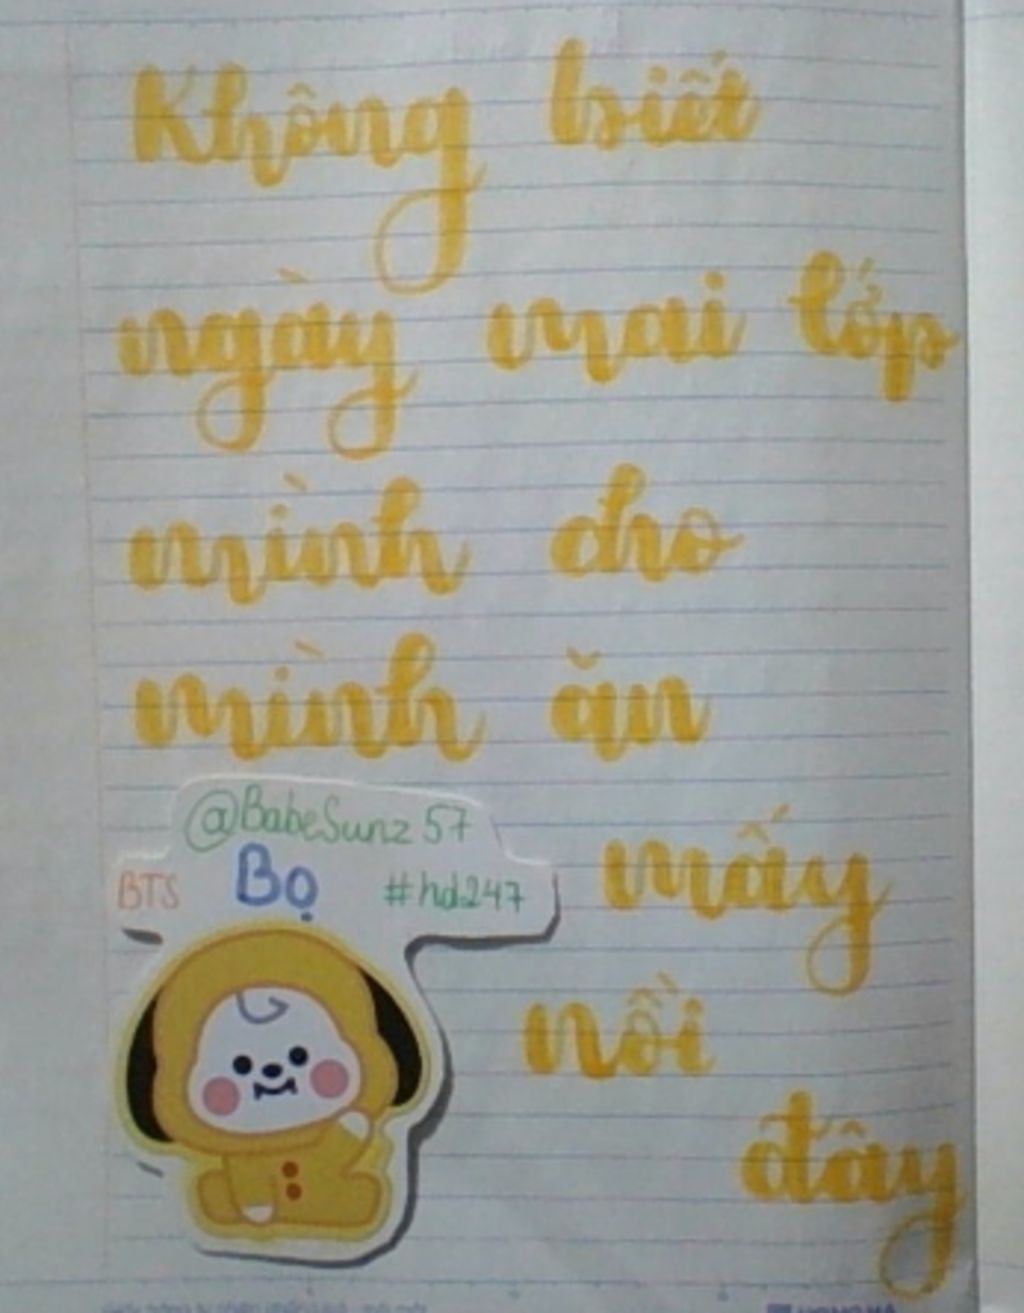 Không biết
ngày mai lớp
mình cho
mình ăn
mấy
nồi
đây
@BabeSunz57
BTS Bọ #hd247